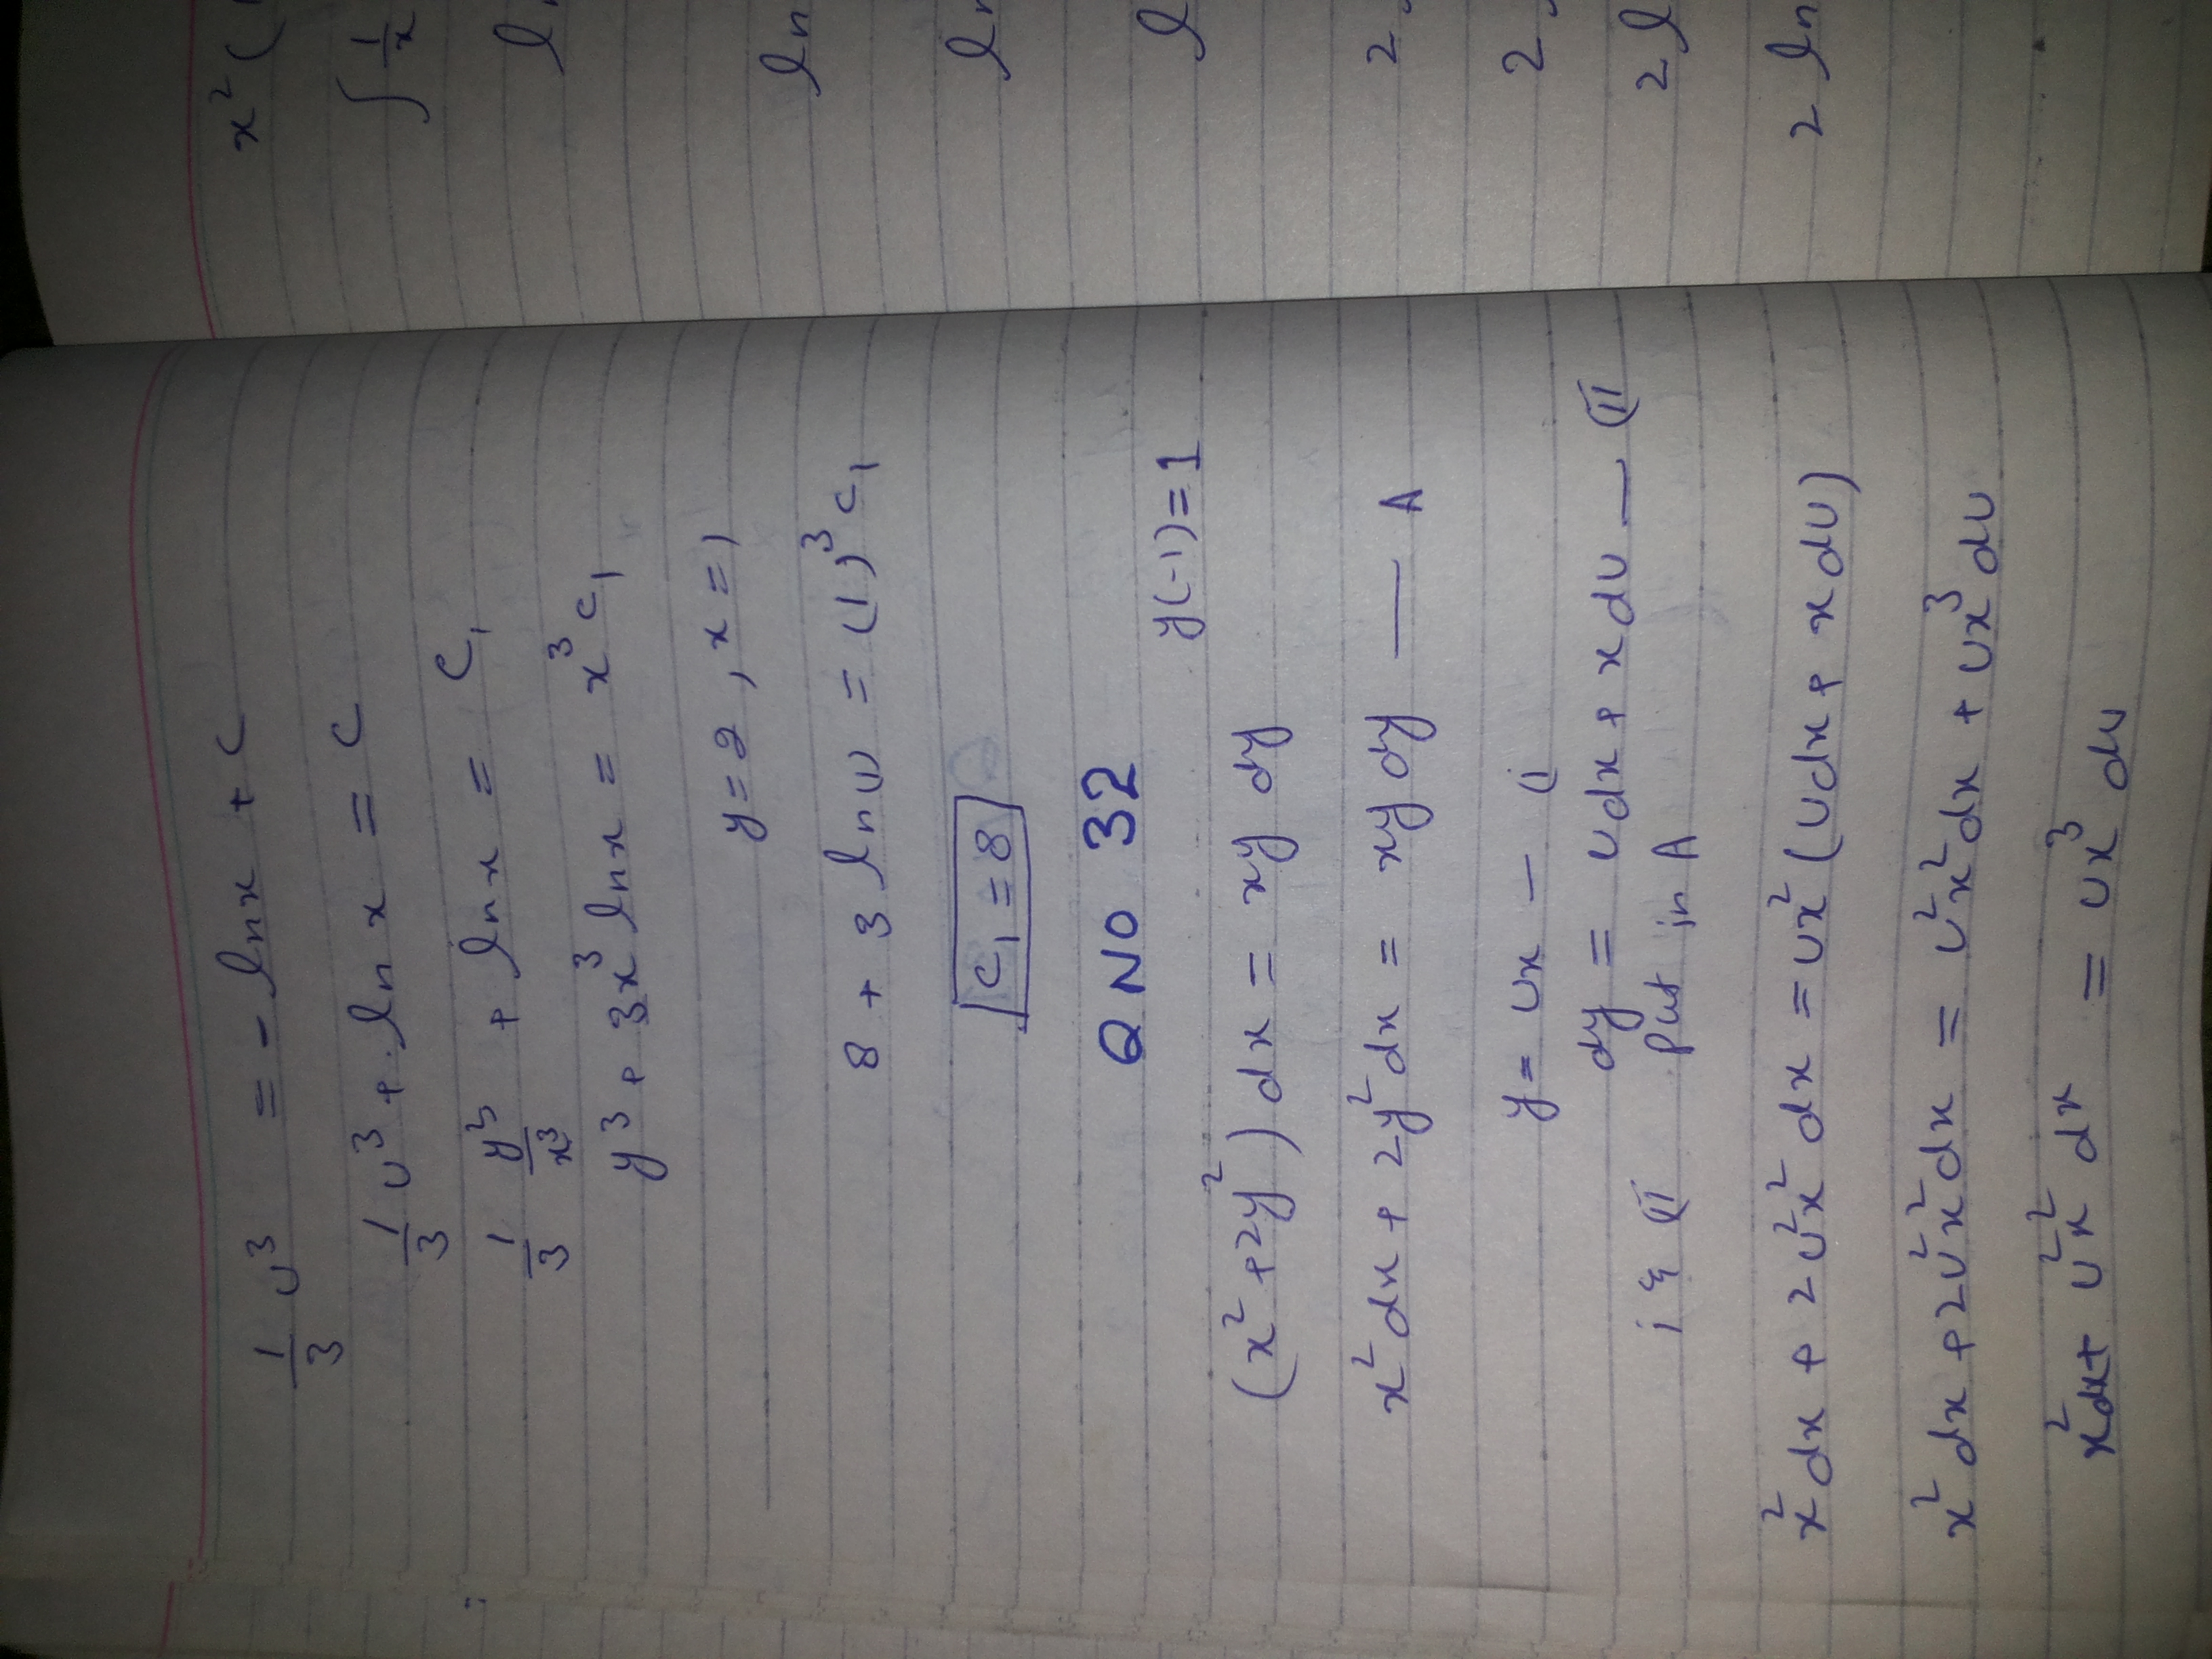 1/3 u³ = - ln x + c
1/3 u³ + ln x = c
1/3 y³/x³ + ln x = c₁
y³ + 3x³ ln x = x³ c₁
y = 2 , x = 1
8 + 3 ln(1) = (1)³ c₁
c₁ = 8
Q NO 32
y(-1) = 1
(x² + 2y²) dx = xy dy
x² dx + 2y² dx = xy dy — A
y = ux — (i
dy = u dx + x du — (ii
i & (ii Put in A
x² dx + 2u²x² dx = ux² (u dx + x du)
x² dx + 2u²x² dx = u²x² dx + ux³ du
x² dx + u²x² dx = ux³ du
x² (
∫ 1/x
ln
ln
2
2
2 l
2 ln